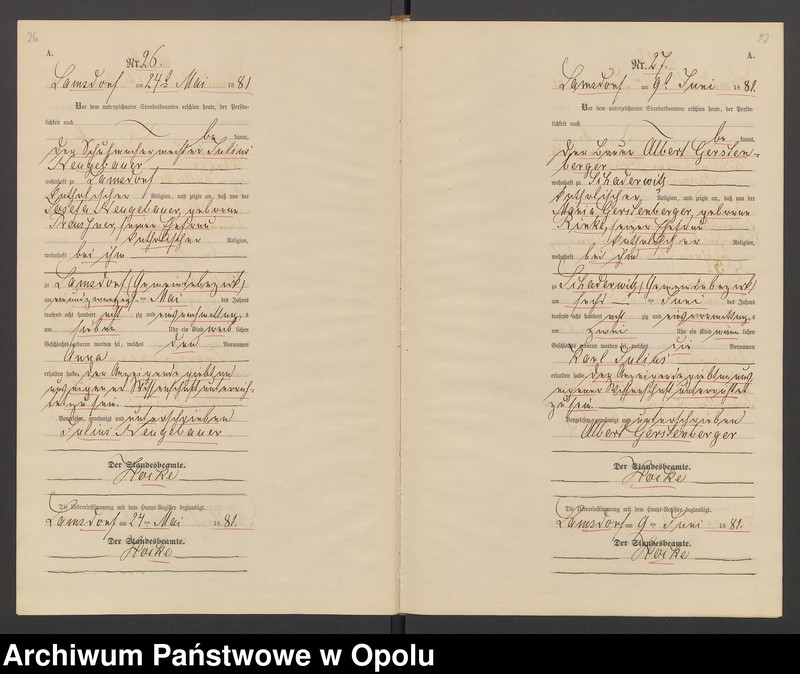 26
A.
Nr. 26.
Lamsdorf am 24ten Mai 1881
Vor dem unterzeichneten Standesbeamten erschien heute, der Persön-
lichkeit nach
be kannt,
der Schuhmachermeister Julius
Nengebauer
wohnhaft zu Lamsdorf
katholischer Religion, und zeigte an, daß von der
Josefa Nengebauer, geborne
seiner Ehefrau
katholischer Religion,
wohnhaft bei ihm
zu Lamsdorf (Gemeindebezirk)
am einundzwanzigsten Mai des Jahres
tausend acht hundert acht zig und eins Vormittags
um sieben Uhr ein Kind weiblichen
Geschlechts geboren worden sei, welches den Vornamen
Anna
erhalten habe. Der Anzeigende giebt an
aus eigener Wissenschaft unterrich-
tet zu sein.
Vorgelesen, genehmigt und unterschrieben
Julius Nengebauer
Der Standesbeamte.
Hoike
Die Uebereinstimmung mit dem Haupt-Register beglaubigt.
Lamsdorf am 24ten Mai 1881.
Der Standesbeamte.
Hoike
27
A.
Nr. 27.
Lamsdorf am 9ten Juni 1881.
Vor dem unterzeichneten Standesbeamten erschien heute, der Persön-
lichkeit nach
be kannt,
der Bauer Albert Gersten-
berger
wohnhaft zu Schaderwitz
katholischer Religion, und zeigte an, daß von der
Maria Gerstenberger, geborne
Rinke, seiner Ehefrau
katholischer Religion,
wohnhaft bei ihm
zu Schaderwitz (Gemeindebezirk)
am sechsten Juni des Jahres
tausend acht hundert acht zig und eins Vormittags
um zwei Uhr ein Kind männlichen
Geschlechts geboren worden sei, welches die Vornamen
Karl Julius
erhalten habe. Der Anzeigende giebt an aus
eigener Wissenschaft unterrichtet
zu sein.
Vorgelesen, genehmigt und unterschrieben
Albert Gerstenberger
Der Standesbeamte.
Hoike
Die Uebereinstimmung mit dem Haupt-Register beglaubigt.
Lamsdorf am 9ten Juni 1881.
Der Standesbeamte.
Hoike
Archiwum Państwowe w Opolu